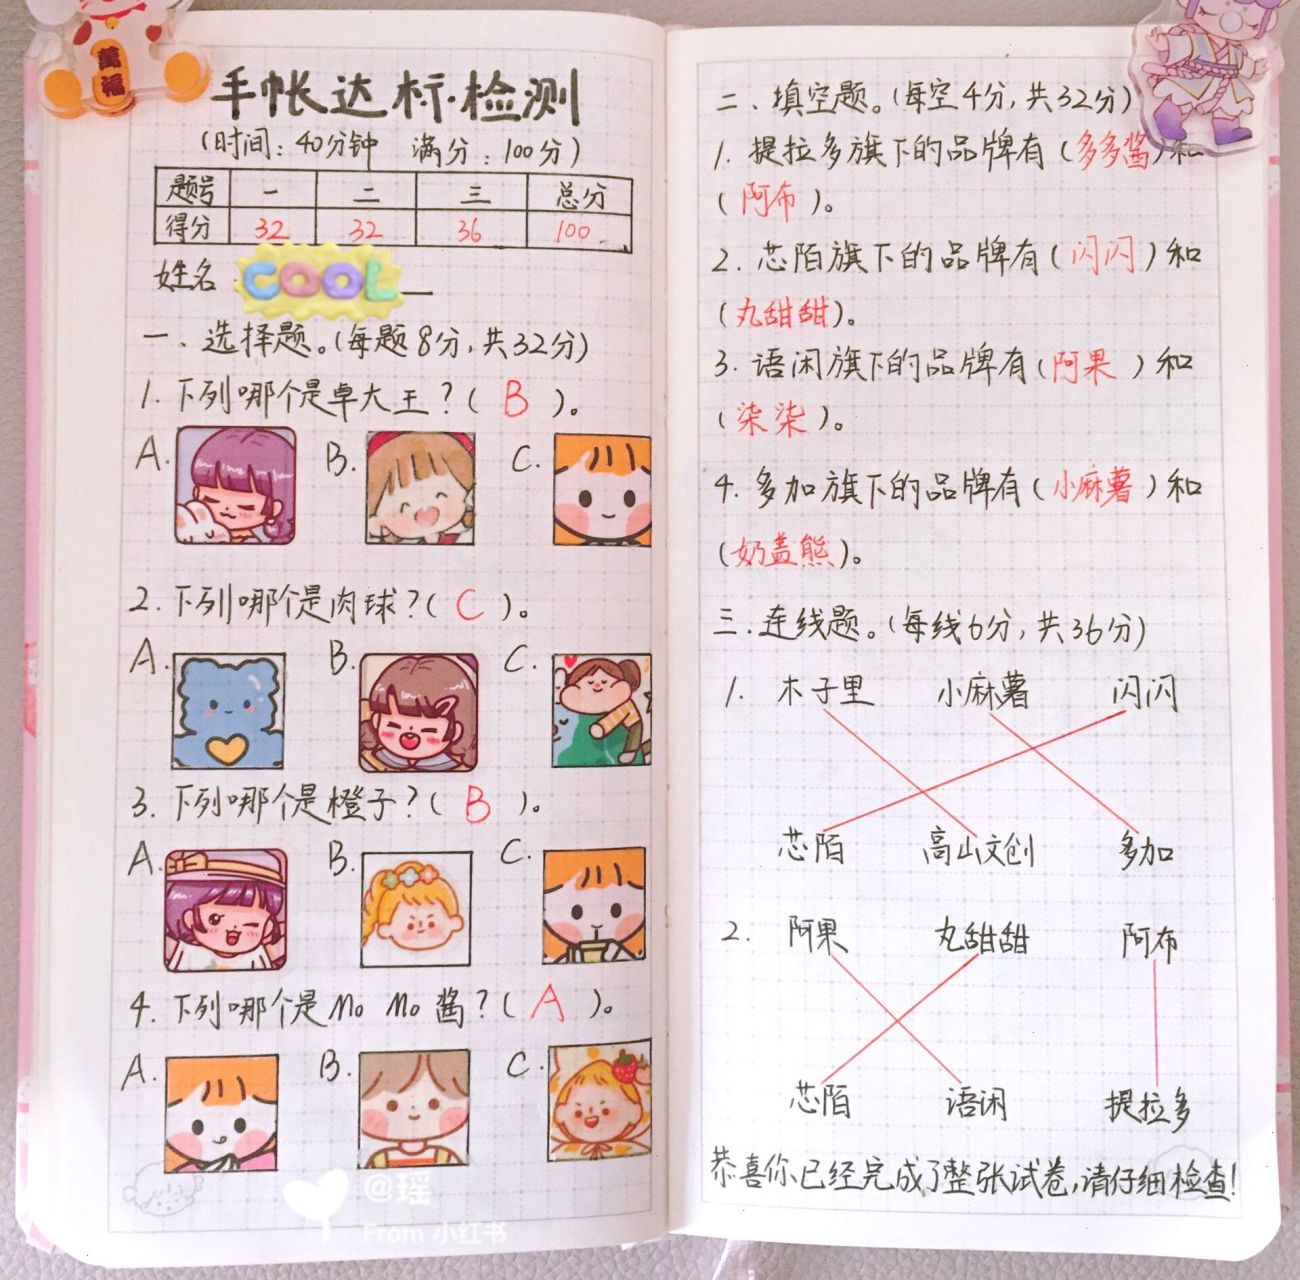 萬福
手帐达标检测
(时间:40分钟 满分:100分)
题号 一 二 三 总分
得分 32 32 36 100
姓名 COOL
一、选择题。(每题8分,共32分)
1.下列哪个是卓大王?( B )。
A. B. C.
2.下列哪个是肉球?( C )。
A. B. C.
3.下列哪个是橙子?( B )。
A. B. C.
4.下列哪个是Mo Mo酱?( A )。
A. B. C.
@瑶
From 小红书
二、填空题。(每空4分,共32分)
1.提拉多旗下的品牌有(多多酱)和
(阿布)。
2.芯陌旗下的品牌有(闪闪)和
(丸甜甜)。
3.语闲旗下的品牌有(阿果)和
(柒柒)。
4.多加旗下的品牌有(小麻薯)和
(奶盖熊)。
三.连线题。(每线6分,共36分)
1. 木子里 小麻薯 闪闪
芯陌 高山文创 多加
2. 阿果 丸甜甜 阿布
芯陌 语闲 提拉多
恭喜你已经完成了整张试卷,请仔细检查!